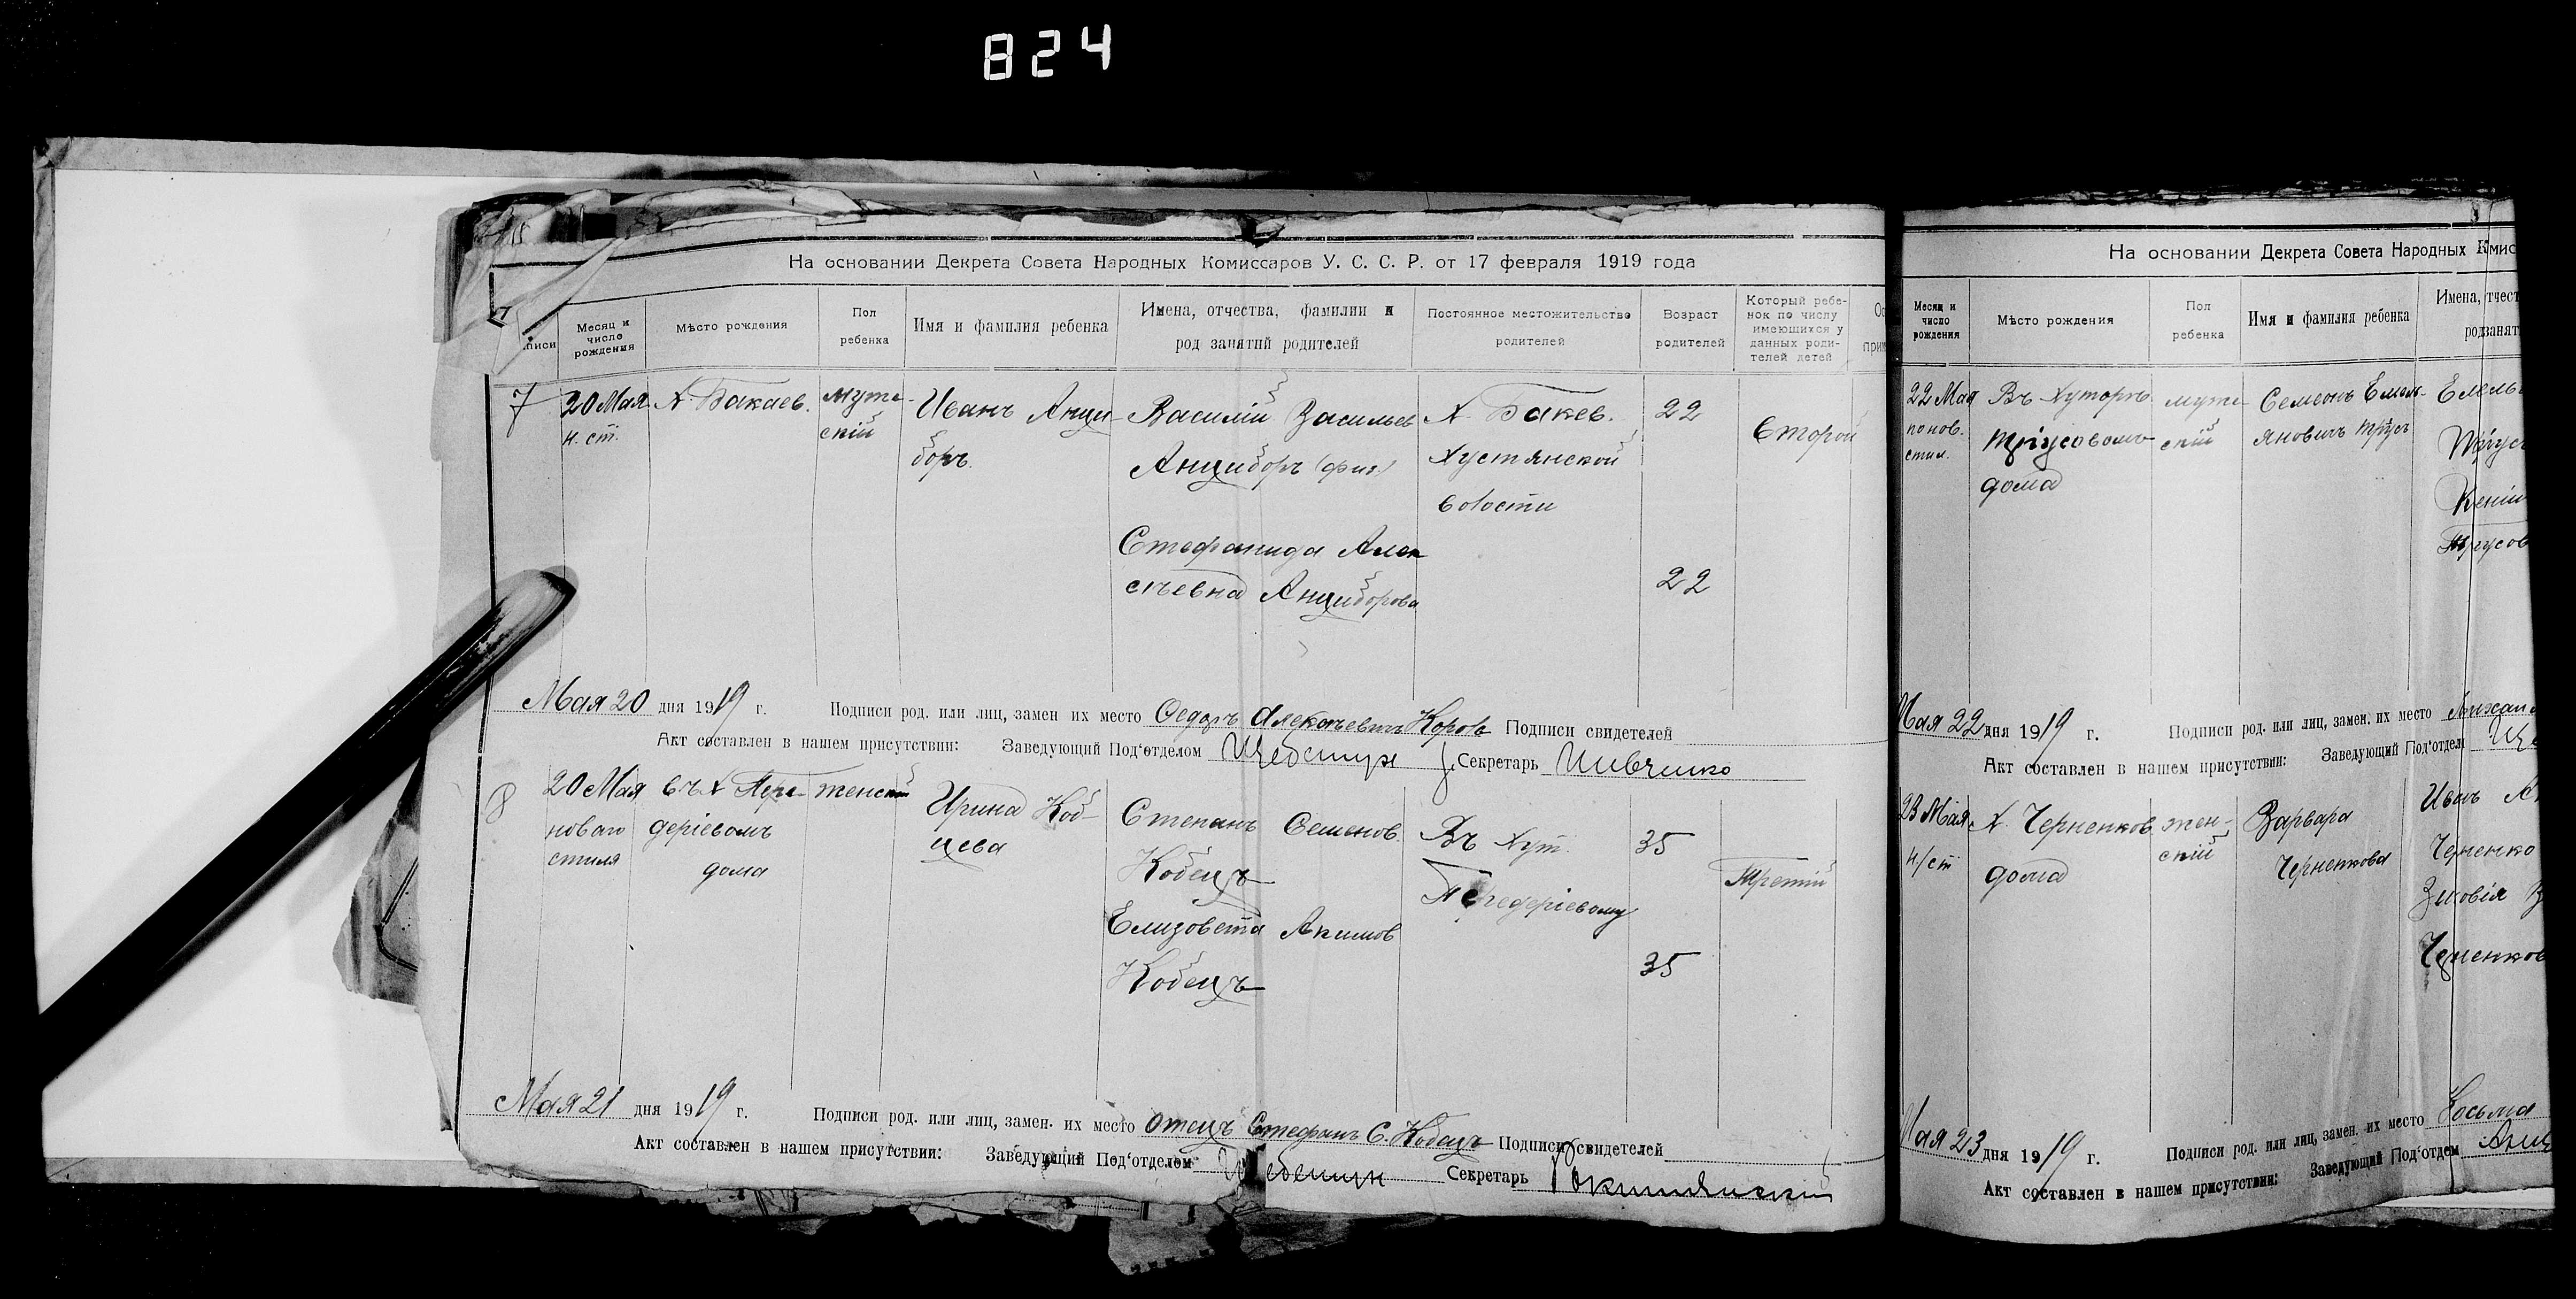 824
На основании Декрета Совета Народных Комиссаров У. С. С. Р. от 17 февраля 1919 года
Месяц и число рождения
Мѣсто рождения
Пол ребенка
Имя и фамилия ребенка
Имена, отчества, фамилии и род занятий родителей
Постоянное местожительство родителей
Возраст родителей
Который ребенок по числу имеющихся у данных родителей детей
7
20 Мая
н. ст.
Х. Бакаев.
муже-
скій
Иванъ Анци-
боръ.
Василій Васильев
Анциборъ
Стефанида Алек
сѣевна Анциборова
Х. Бакев.
Хустянской
волости
22
22
Второй
Мая 20 дня 1919 г. Подписи род. или лиц, замен их место Федоръ Алексѣевичъ Коровъ Подписи свидетелей
Акт составлен в нашем присутствии: Заведующий Под‘отделом Секретарь Шевченко
8
20 Мая
новаго
стиля
въ Х Пере-
деріевомъ
дома
женскій
Ирина Коб-
цева
Степанъ Семенов.
Кобецъ
Елизовета Акимов
Кобецъ
Въ Хут.
Передеріевому
35
35
Третій
Мая 21 дня 1919 г. Подписи род. или лиц, замен. их место Отецъ Стефанъ С. Кобецъ Подписи свидетелей
Акт составлен в нашем присутствии: Заведующий Под‘отделом Секретарь
На основании Декрета Совета Народных Комис
Месяц и число рождения
Мѣсто рождения
Пол ребенка
Имя и фамилия ребенка
22 Мая
по нов.
стил.
Въ Хуторѣ
Трусовомъ
дома
муже-
скій
Семенъ Емель-
яновичъ Трусъ
Мая 22 дня 1919 г. Подписи род. или лиц, замен. их место
Акт составлен в нашем присутствии: Заведующий Под‘отдел
23 Мая
н/ст
Х. Черненков
дома
жен-
скій
Варвара
Черненкова
Иванъ
Черненко
Зиновія
Черненков
Мая 23 дня 1919 г. Подписи род. или лиц, замен. их место Косьма
Акт составлен в нашем присутствии: Заведующий Под‘отдем